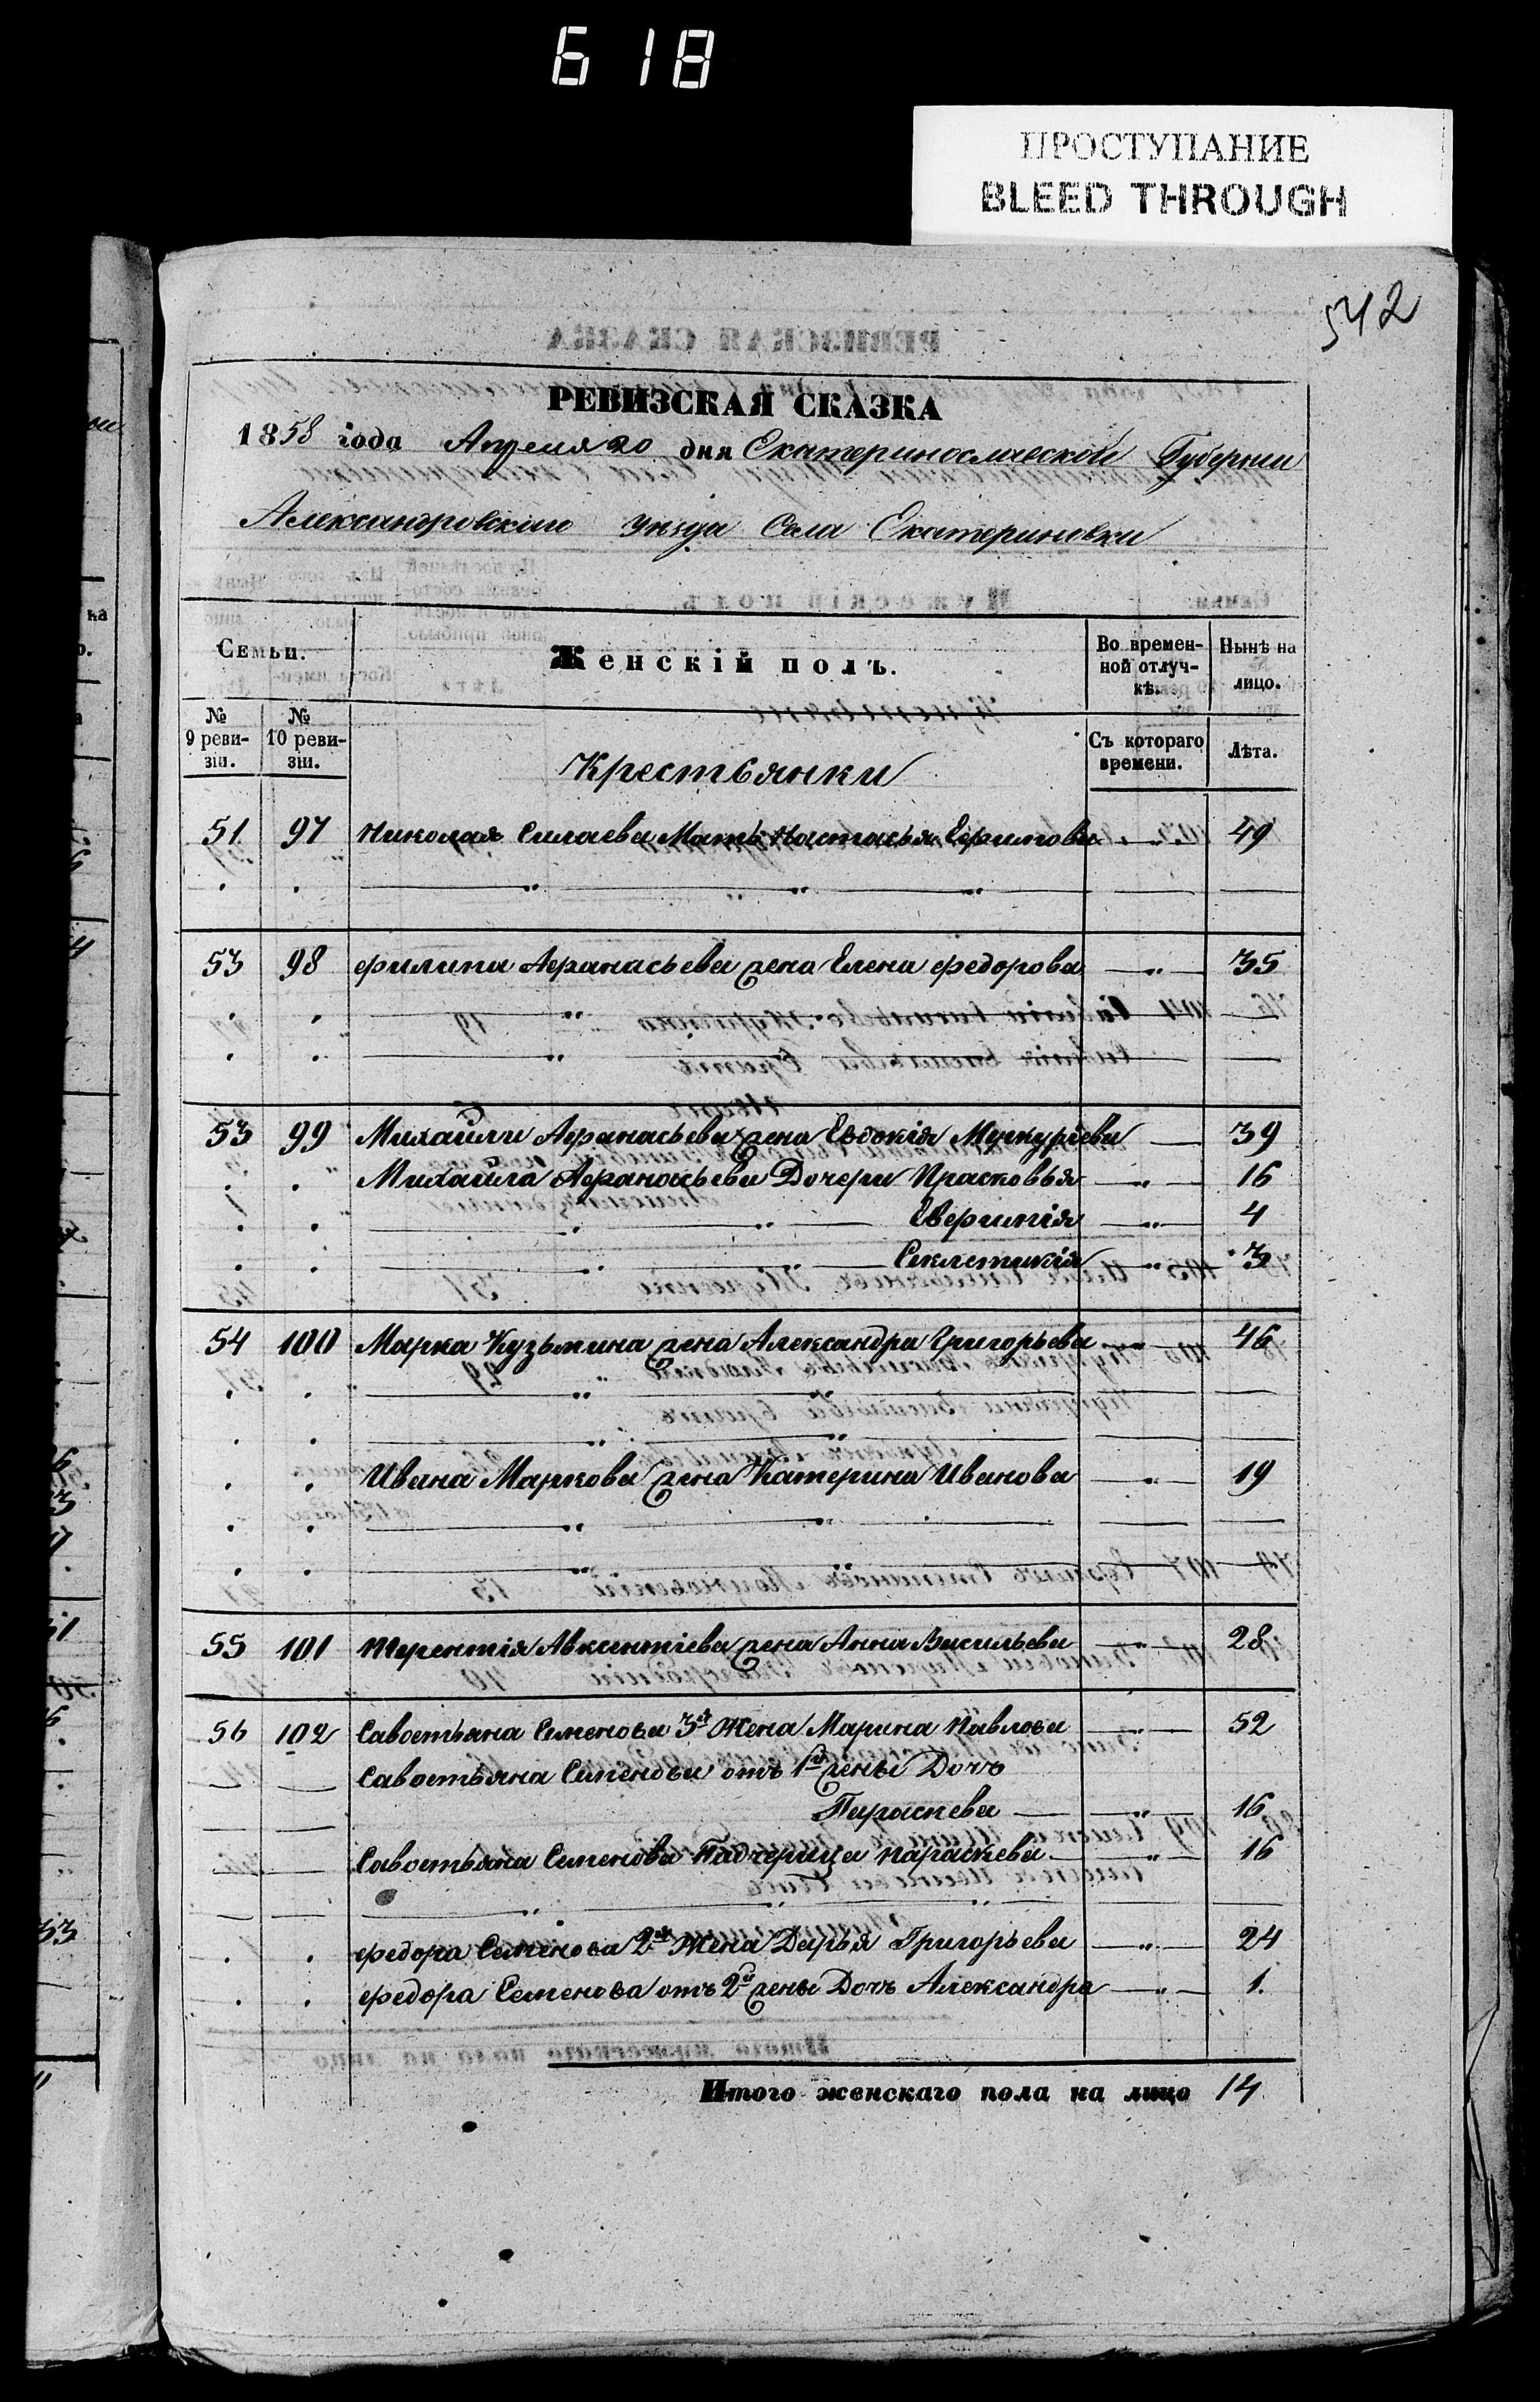 618
ПРОСТУПАНИЕ
BLEED THROUGH
542
РЕВИЗСКАЯ СКАЗКА
1858 года Апреля 20 дня Екатеринославской Губернии
Александровского Уезда Села Екатериновки
Семьи. Женскій полъ. Во времен- ной отлуч- кѣ. Нынѣ на лицо.
№ 9 реви- зіи. № 10 реви- зіи. Съ котораго времени. Лѣта.
Крестьянки
51 97 Николая Силаева Мать Настасья Ефимова — " — 49
53 98 Филипа Афанасьева жена Елена Федорова — " — 35
53 99 Михайлы Афанасьева жена Евдокія Меркуріева — 39
Михайла Афанасьева Дочери Прасковья — " — 16
Ефимія — " — 4
Секлетикія — " — 3
54 100 Марка Кузьмина жена Александра Григорьева — " — 46
Ивана Маркова жена Катерина Иванова — " — 19
55 101 Терентія Авксентіева жена Анна Васильева — " — 28
56 102 Савостьяна Семенова 3я Жена Марина Павлова — " — 52
Савостьяна Семенова отъ 1й жены Дочь
Параскева — " — 16
Савостьяна Семенова Падчерица Параскева — " — 16
Федора Семенова 2я Жена Дарья Григорьева — " — 24
Федора Семенова отъ 2й жены Дочь Александра — " — 1.
Итого женскаго пола на лицо 14